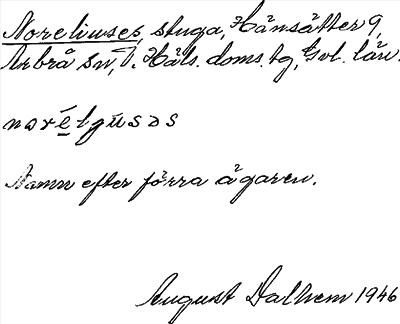 Noreliuses, stuga, Hånsätter 9,
Arbrå sn, V. Häls. doms. tg, Gvl. län.
Namn efter förra ägaren.
August Dalhem 1946